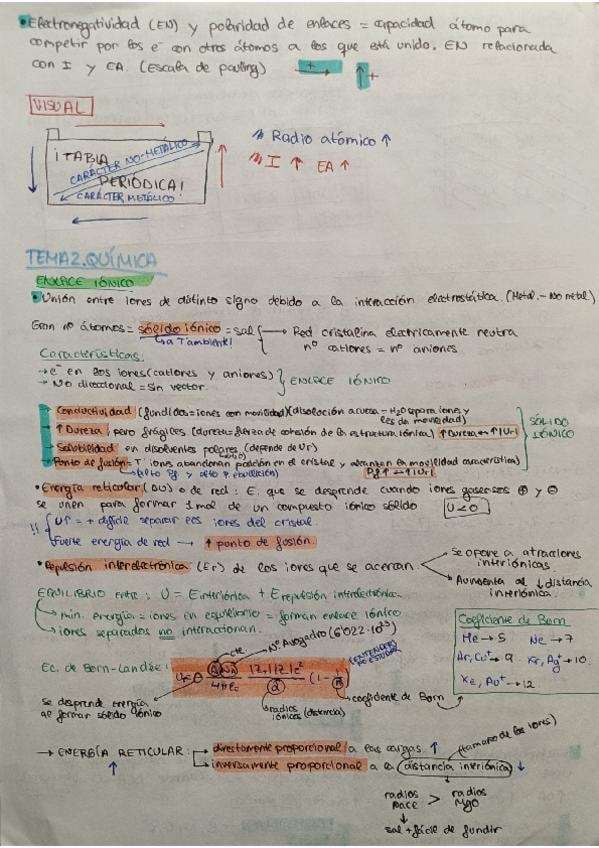 •Electronegatividad (EN) y polaridad de enlaces = capacidad átomo para
competir por los e⁻ con otros átomos a los que está unido. EN relacionada
con I y EA. (Escala de pauling) + → ↑ +
VISUAL
¡TABLA
CARÁCTER NO-METÁLICO
PERIÓDICA!
CARÁCTER METÁLICO
Radio atómico ↑
I ↑ EA ↑
TEMA2.QUÍMICA
ENLACE IÓNICO
•Unión entre iones de distinto signo debido a la interacción electrostática. (Metal - No metal)
Gran nº átomos = sólido iónico = sal → Red cristalina electricamente neutra
a Tambiente!
nº cationes = nº aniones
Características:
→ e⁻ en los iones (cationes y aniones)
→ No direccional = sin vector.
ENLACE IÓNICO
→ Conductividad (fundidos = iones con movilidad) (disolución acuosa - H₂O separa iones y
les da movilidad)
→ ↑ Dureza, pero frágiles (dureza = fuerza de cohesión de la estructura iónica) ↑ Dureza ↔ ↑|Ur|
→ Solubilidad en disolventes polares (depende de Ur)
→ Punto de fusión = Tª iones abandonan posición en el cristal y alcanzan la movilidad característica)
Pf ↑ ↔ ↑|Ur|
SÓLIDO
IÓNICO
•Energía reticular (ΔU) o de red: E. que se desprende cuando iones gaseosos ⊕ y ⊖
se unen para formar 1 mol de un compuesto iónico sólido U<0
!! Ur = + difícil separar los iones del cristal
Fuerte energía de red → ↑ punto de fusión.
•Repulsión interelectrónica (Er) de los iones que se acercan.
Se opone a atracciones
interiónicas.
Aumenta al ↓ distancia
interiónica.
EQUILIBRIO entre: U = Einteriónica + Erepulsión interelectrónica
→ min. energía = iones en equilibrio = forman enlace iónico
→ iones separados no interaccionan.
Coeficiente de Born
He → 5 Ne → 7
Ar, Cu⁺ → 9 Kr, Ag⁺ → 10
Xe, Au⁺ → 12
cte
Nº Avogadro (6'022·10²³)
Ec. de Born-Landée:
coeficiente de Born
radios
iónicos (distancia)
Se desprende energía
al formar sólido iónico
→ ENERGÍA RETICULAR: directamente proporcional a las cargas. ↑
(tamaño de los iones)
↑ inversamente proporcional a la distancia interiónica ↓
radios
NaCl > radios
MgO
sal + fácil de fundir